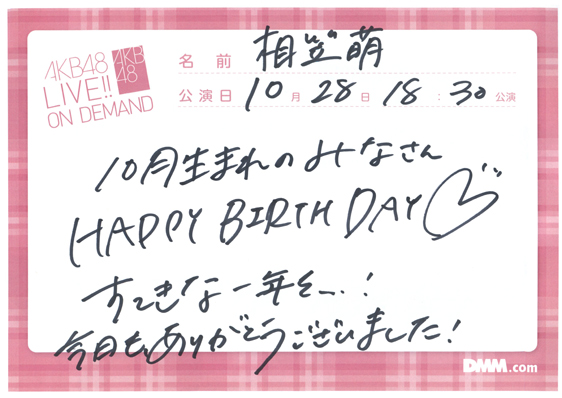 AKB48
LIVE!!
ON DEMAND
AKB
48
名前 相笠萌
公演日 10月28日 18:30公演
10月生まれのみなさん
HAPPY BIRTH DAY
すてきな一年を…!
今日も、ありがとうございました!
DMM.com